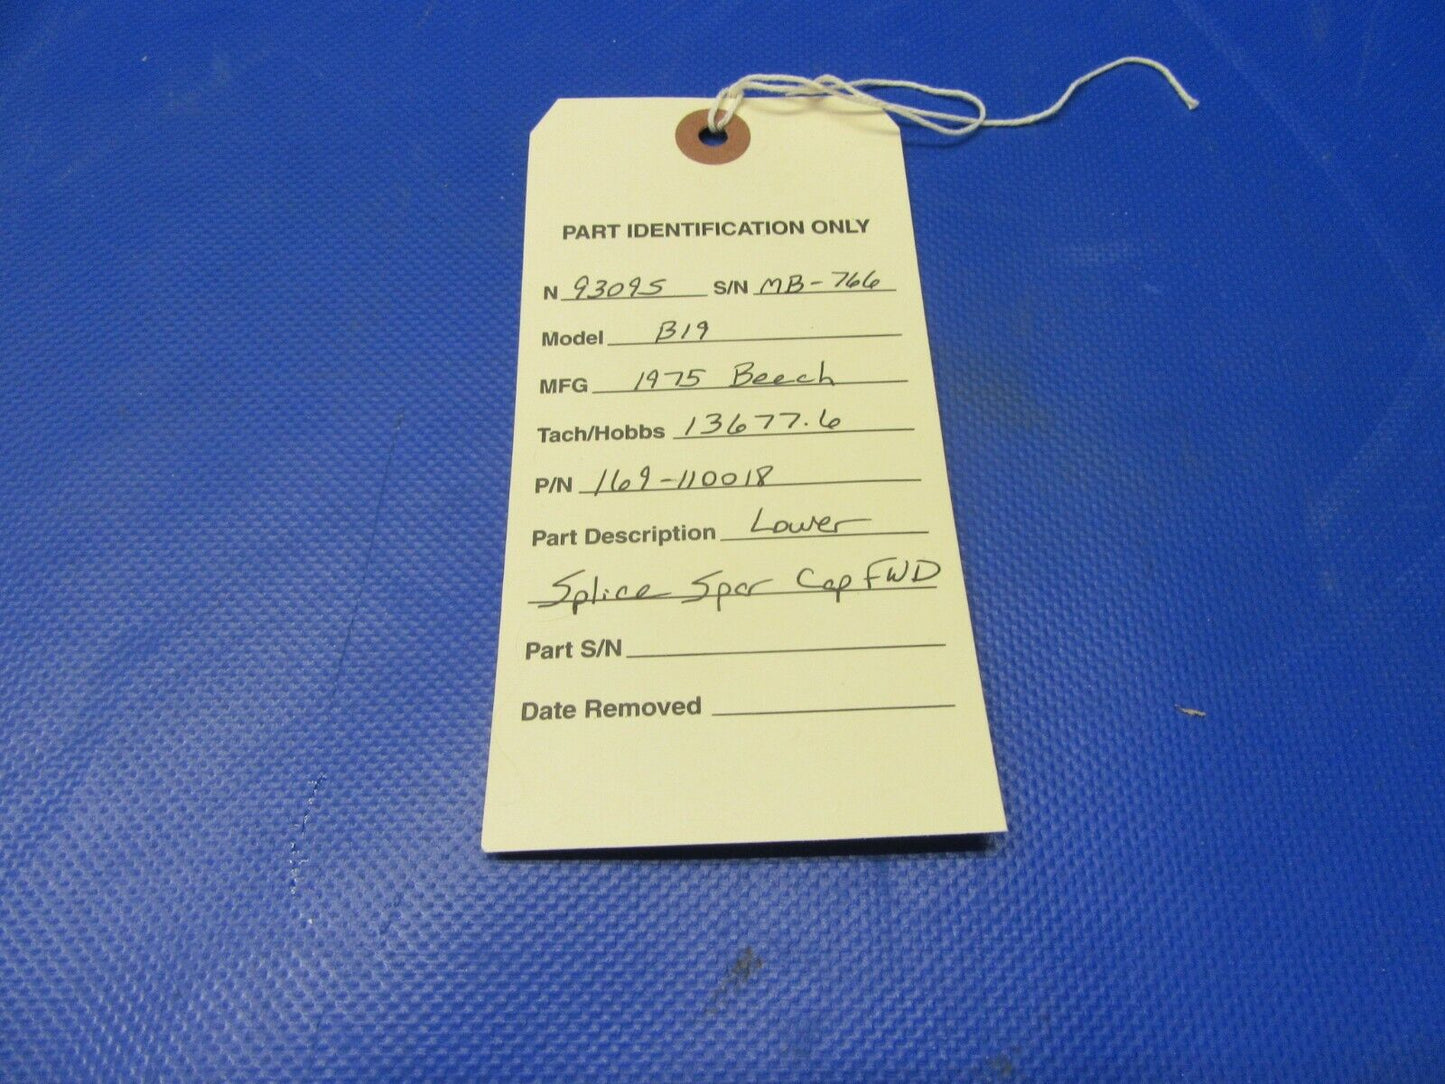 PART IDENTIFICATION ONLY
N 93095 S/N MB-766
Model B19
MFG 1975 Beech
Tach/Hobbs 13677.6
P/N 169-110018
Part Description Lower
Splice Spar Cap FWD
Part S/N
Date Removed